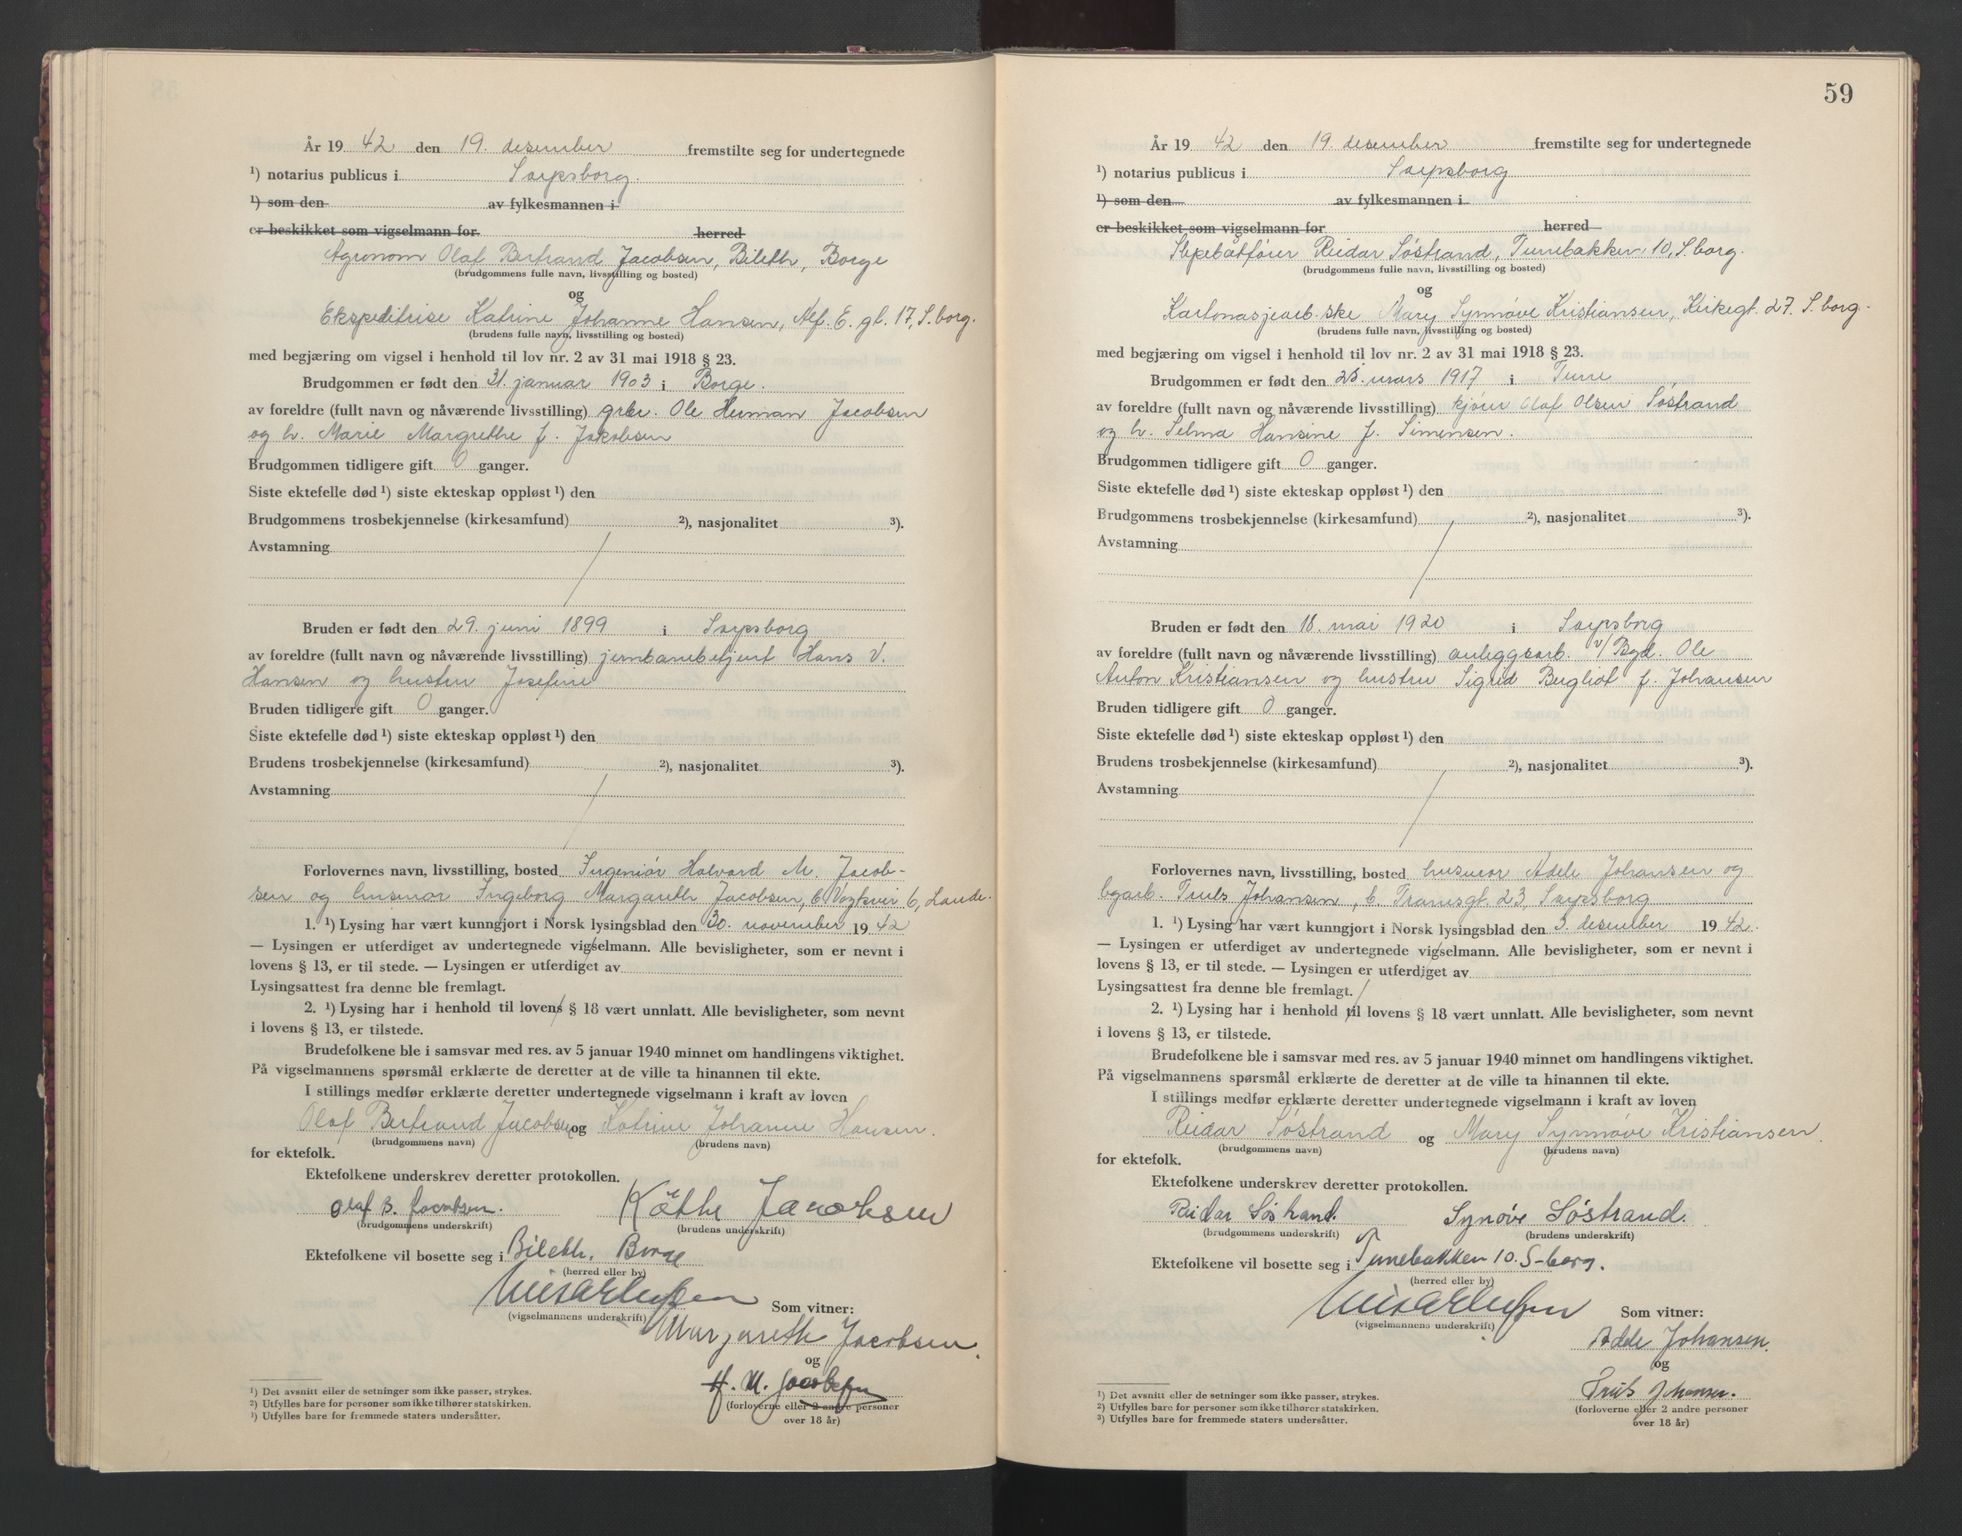 År 19 42 den 19. desember fremstilte seg for undertegnede
¹) notarius publicus i Sarpsborg.
¹) som den av fylkesmannen i
er beskikket som vigselmann for herred
Agronom Olaf Bertrand Jacobsen, Bileth, Borge
(brudgommens fulle navn, livsstilling og bosted)
og
Ekspeditrise Katrine Johanne Hansen, Alf. E. gt. 17, S.borg.
(brudens fulle navn, livsstilling og bosted)
med begjæring om vigsel i henhold til lov nr. 2 av 31 mai 1918 § 23.
Brudgommen er født den 31. januar 1903 i Borge.
av foreldre (fullt navn og nåværende livsstilling) grbr. Ole Herman Jacobsen
og h. Marie Margrethe f. Jakobsen
Brudgommen tidligere gift 0 ganger.
Siste ektefelle død ¹) siste ekteskap oppløst ¹) den
Brudgommens trosbekjennelse (kirkesamfund) ²), nasjonalitet ³).
Avstamning
Bruden er født den 29. juni 1899 i Sarpsborg
av foreldre (fullt navn og nåværende livsstilling) jernbanebetjent Hans V.
Hansen og hustru Josefine
Bruden tidligere gift 0 ganger.
Siste ektefelle død ¹) siste ekteskap oppløst ¹) den
Brudens trosbekjennelse (kirkesamfund) ²), nasjonalitet ³).
Avstamning
Forlovernes navn, livsstilling, bosted Ingeniør Halvard M. Jacob-
sen og husmor Ingeborg Margareth Jacobsen, b. Vogtsvei 6, Lande.
1. ¹) Lysing har vært kunngjort i Norsk lysingsblad den 30. november 19 42
— Lysingen er utferdiget av undertegnede vigselmann. Alle bevisligheter, som er nevnt i
lovens § 13, er til stede. — Lysingen er utferdiget av
Lysingsattest fra denne ble fremlagt.
2. ¹) Lysing har i henhold til lovens § 18 vært unnlatt. Alle bevisligheter, som nevnt
i lovens § 13, er tilstede.
Brudefolkene ble i samsvar med res. av 5 januar 1940 minnet om handlingens viktighet.
På vigselmannens spørsmål erklærte de deretter at de ville ta hinannen til ekte.
I stillings medfør erklærte deretter undertegnede vigselmann i kraft av loven
Olaf Bertrand Jacobsen og Katrine Johanne Hansen.
(brudgommens navn) (brudens navn)
for ektefolk.
Ektefolkene underskrev deretter protokollen.
Olaf B. Jacobsen. Käthe Jacobsen
(brudgommens underskrift) (brudens underskrift)
Ektefolkene vil bosette seg i Bileth, Borge
(herred eller by)
Som vitner:
(vigselmannens underskrift)
Margareth Jacobsen.
og
H. M. Jacobsen
(forloverne eller 2 andre personer
over 18 år)
¹) Det avsnitt eller de setninger som ikke passer, strykes.
²) Utfylles bare for personer som ikke tilhører statskirken.
¹) Utfylles bare for fremmede staters undersåtter.
59
År 19 42 den 19. desember fremstilte seg for undertegnede
¹) notarius publicus i Sarpsborg
¹) som den av fylkesmannen i
er beskikket som vigselmann for herred
Slepebåtfører Reidar Søstrand, Tunebakken 10, S.borg.
(brudgommens fulle navn, livsstilling og bosted)
og
Kartonasjearb.ske Mary Synnøve Kristiansen, Kirkegt. 27. S.borg.
(brudens fulle navn, livsstilling og bosted)
med begjæring om vigsel i henhold til lov nr. 2 av 31 mai 1918 § 23.
Brudgommen er født den 25. mars 1917 i Tune
av foreldre (fullt navn og nåværende livsstilling) kjører Olaf Olsen Søstrand
og h. Selma Hansine f. Simensen.
Brudgommen tidligere gift 0 ganger.
Siste ektefelle død ¹) siste ekteskap oppløst ¹) den
Brudgommens trosbekjennelse (kirkesamfund) ²), nasjonalitet ³).
Avstamning
Bruden er født den 18. mai 1920 i Sarpsborg
av foreldre (fullt navn og nåværende livsstilling) anleggsarb. v/Byd. Ole
Anton Kristiansen og hustru Sigrid Bergliot f. Johansen
Bruden tidligere gift 0 ganger.
Siste ektefelle død ¹) siste ekteskap oppløst ¹) den
Brudens trosbekjennelse (kirkesamfund) ²), nasjonalitet ³).
Avstamning
Forlovernes navn, livsstilling, bosted husmor Adele Johansen og
bgarb. Truls Johansen, b. Transgt. 23, Sarpsborg
1. ¹) Lysing har vært kunngjort i Norsk lysingsblad den 3. desember 19 42.
— Lysingen er utferdiget av undertegnede vigselmann. Alle bevisligheter, som er nevnt i
lovens § 13, er til stede. — Lysingen er utferdiget av
Lysingsattest fra denne ble fremlagt.
2. ¹) Lysing har i henhold til lovens § 18 vært unnlatt. Alle bevisligheter, som nevnt
i lovens § 13, er tilstede.
Brudefolkene ble i samsvar med res. av 5 januar 1940 minnet om handlingens viktighet.
På vigselmannens spørsmål erklærte de deretter at de ville ta hinannen til ekte.
I stillings medfør erklærte deretter undertegnede vigselmann i kraft av loven
Reidar Søstrand og Mary Synnøve Kristiansen.
(brudgommens navn) (brudens navn)
for ektefolk.
Ektefolkene underskrev deretter protokollen.
Reidar Søstrand. Synøve Søstrand.
(brudgommens underskrift) (brudens underskrift)
Ektefolkene vil bosette seg i Tunebakken 10. S-borg.
(herred eller by)
Som vitner:
(vigselmannens underskrift)
Adele Johansen.
og
Truls Johansen.
(forloverne eller 2 andre personer
over 18 år)
¹) Det avsnitt eller de setninger som ikke passer, strykes.
²) Utfylles bare for personer som ikke tilhører statskirken.
³) Utfylles bare for fremmede staters undersåtter.